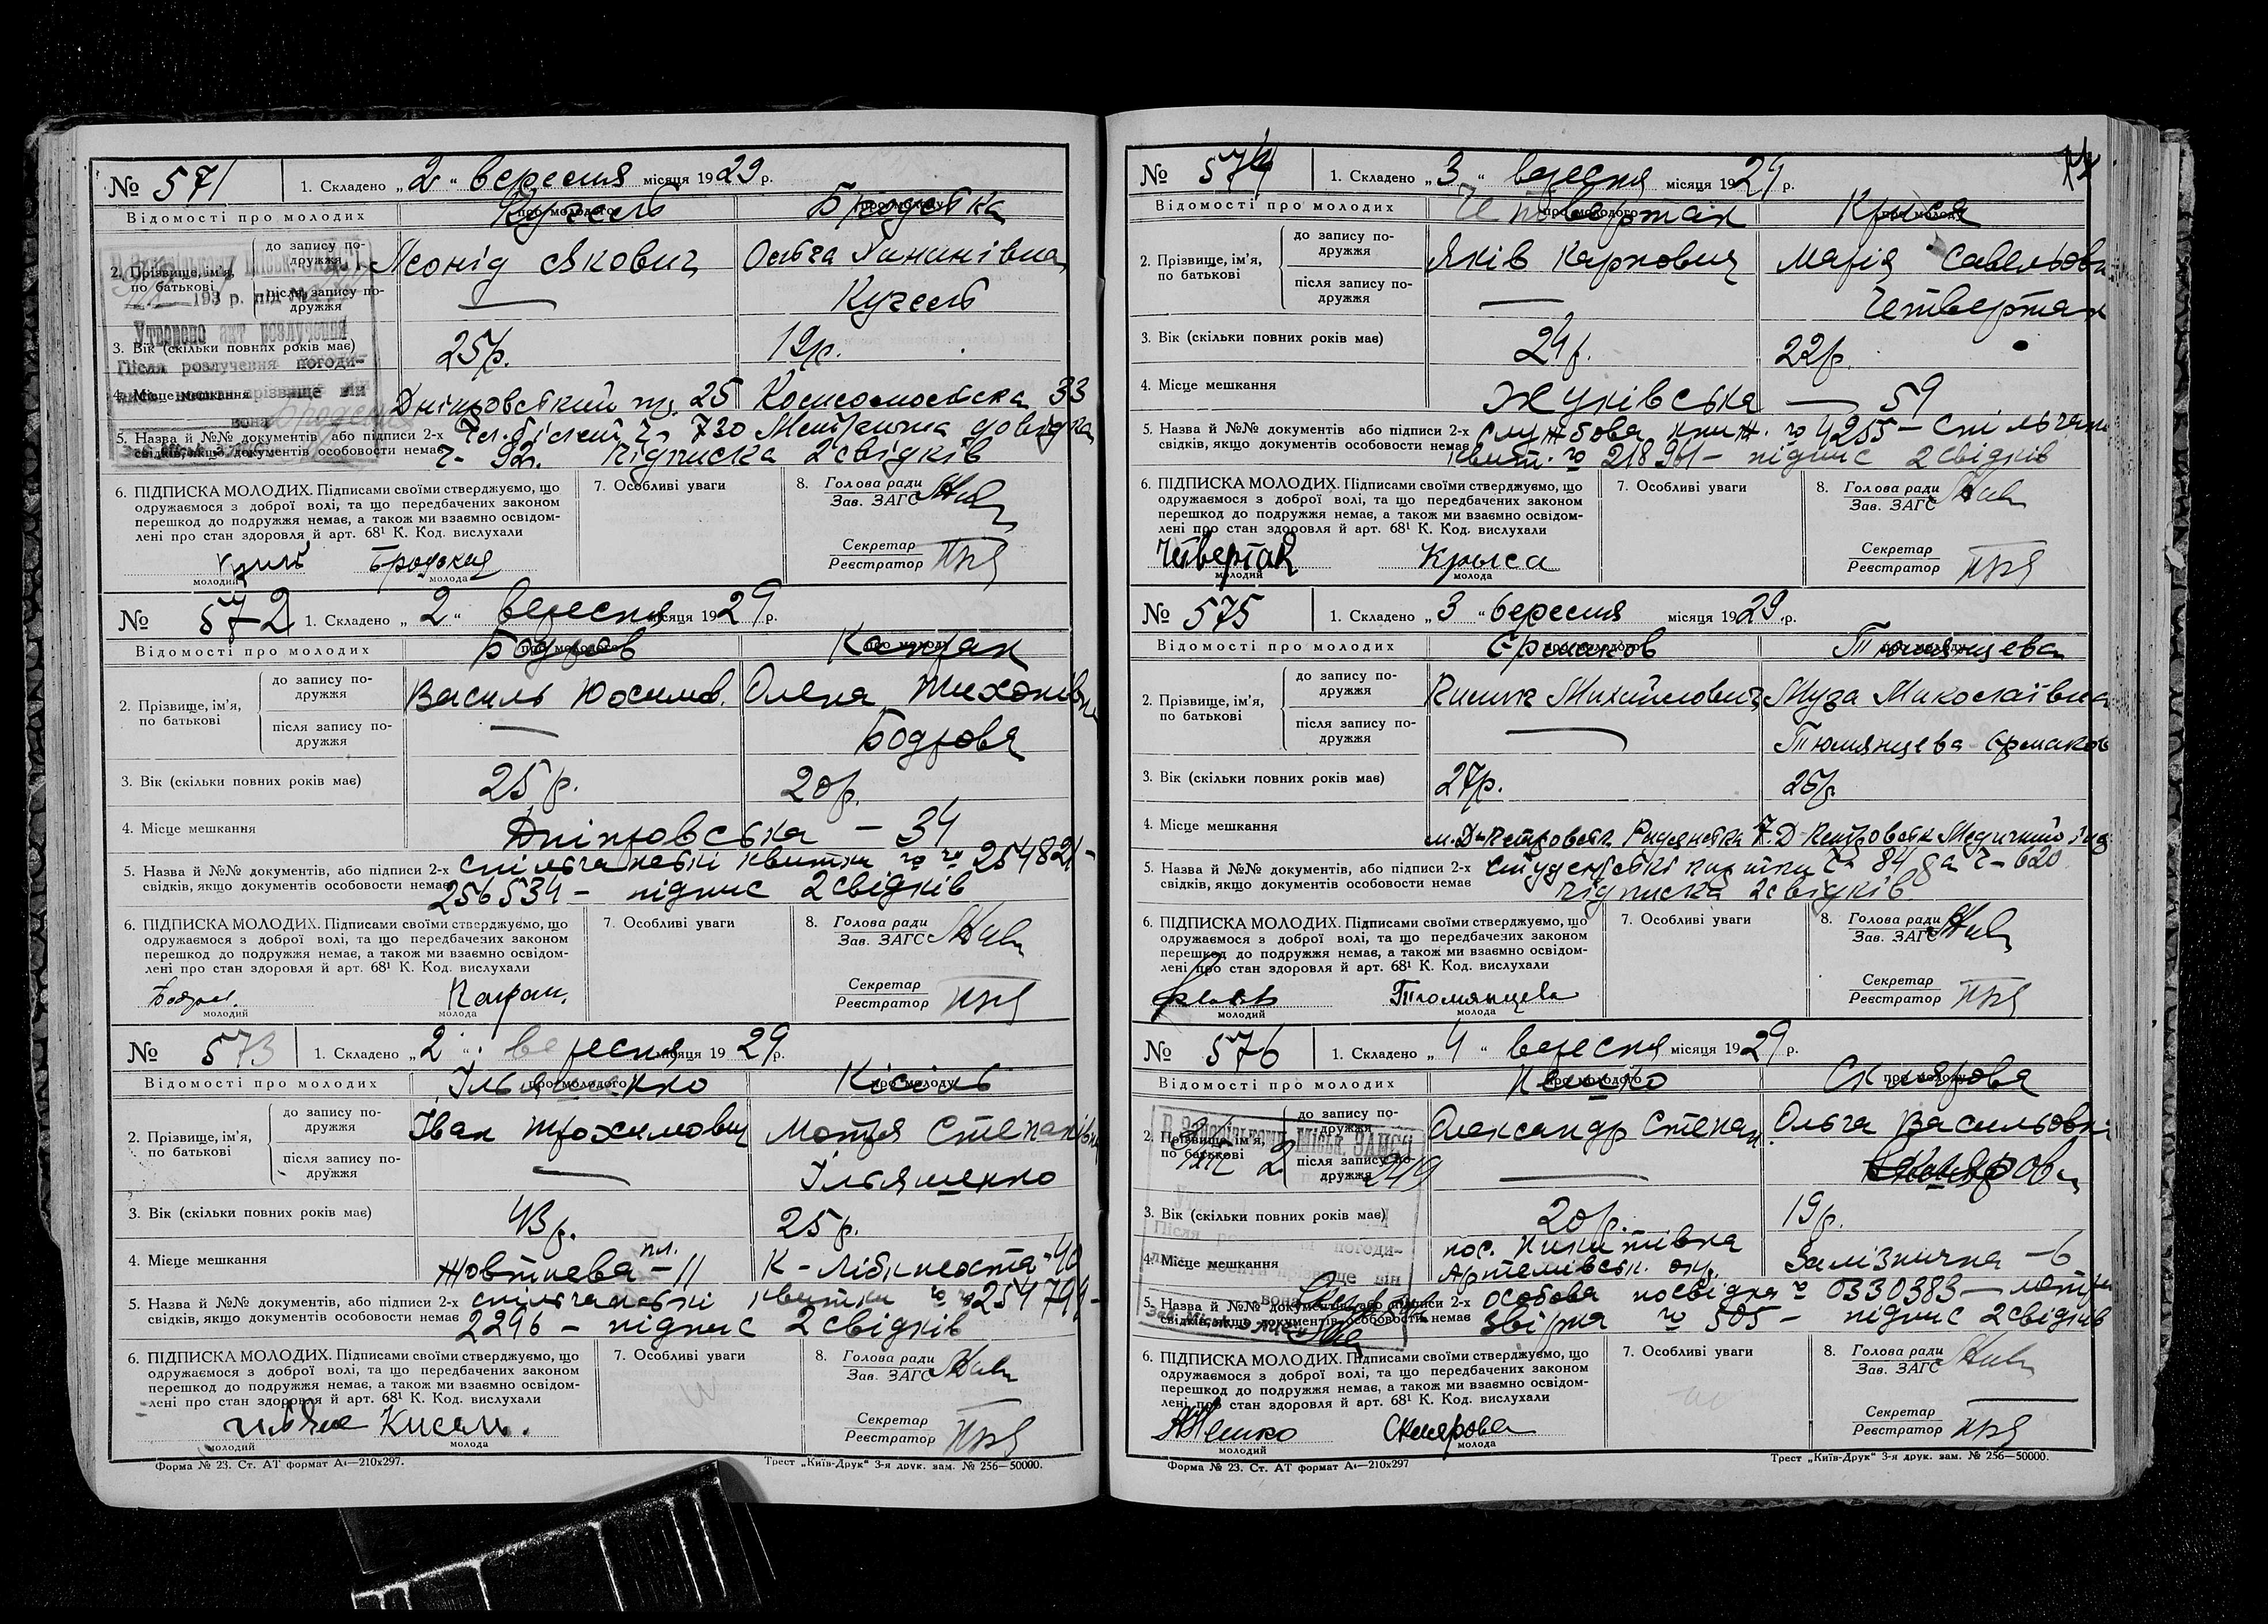 № 571 1. Складено „2“ вересня місяця 1929 р.
Відомості про молодих про молодого про молоду
Кугель Бродська
2. Прізвище, ім'я, по батькові до запису по-дружжя Леонід Якович Ольга
після запису по-дружжя — Кугель
193 р. під №
Утворено акт розлучення
Після розлучення погоди-
прізвище він
вона
3. Вік (скільки повних років має) 25 р. 19 р.
4. Місце мешкання Дніпровський пр. 25 Комсомольска 33
5. Назва й №№ документів, або підписи 2-х свідків, якщо документів особовости немає
Чл. білет ч. 730 Метрична довідка
ч. 92. Підписка 2 свідків
6. ПІДПИСКА МОЛОДИХ. Підписами своїми стверджуємо, що
одружаємося з доброї волі, та що передбачених законом
перешкод до подружжя немає, а також ми взаємно освідом-
лені про стан здоровля й арт. 68¹ К. Код. вислухали
Бродская
молодий молода
7. Особливі уваги
8. Голова ради
Зав. ЗАГС
Секретар
Реєстратор
№ 572 1. Складено „2“ вересня місяця 1929 р.
Відомості про молодих про молодого про молоду
Бодров
2. Прізвище, ім'я, по батькові до запису по-дружжя Василь Юхимов. Олена Тихонівна
після запису по-дружжя — Бодрова
3. Вік (скільки повних років має) 25 р. 20 р.
4. Місце мешкання Дніпровська — 34
5. Назва й №№ документів, або підписи 2-х свідків, якщо документів особовости немає
спільчанські квитки чч 254821 –
256534 – підпис 2 свідків
6. ПІДПИСКА МОЛОДИХ. Підписами своїми стверджуємо, що
одружаємося з доброї волі, та що передбачених законом
перешкод до подружжя немає, а також ми взаємно освідом-
лені про стан здоровля й арт. 68¹ К. Код. вислухали
молодий молода
7. Особливі уваги
8. Голова ради
Зав. ЗАГС
Секретар
Реєстратор
№ 573 1. Складено „2“ вересня місяця 1929 р.
Відомості про молодих про молодого про молоду
Ільяшенко Кісіль
2. Прізвище, ім'я, по батькові до запису по-дружжя Іван Трохимович Мотря Степанівна
після запису по-дружжя — Ільяшенко
3. Вік (скільки повних років має) 43 р. 25 р.
4. Місце мешкання Жовтнева пл. – 11 К – Лібкнехта – 40
5. Назва й №№ документів, або підписи 2-х свідків, якщо документів особовости немає
спільчанські квитки чч 254794 –
2296 – підпис 2 свідків
6. ПІДПИСКА МОЛОДИХ. Підписами своїми стверджуємо, що
одружаємося з доброї волі, та що передбачених законом
перешкод до подружжя немає, а також ми взаємно освідом-
лені про стан здоровля й арт. 68¹ К. Код. вислухали
Кисель.
молодий молода
7. Особливі уваги
8. Голова ради
Зав. ЗАГС
Секретар
Реєстратор
Форма № 23. Ст. АТ формат А₄—210х297. Трест „Київ-Друк“ 3-я друк. зам. № 256—50000.
№ 574 1. Складено „3“ вересня місяця 1929 р.
Відомості про молодих про молодого про молоду
Четвертак Крыса
2. Прізвище, ім'я, по батькові до запису по-дружжя Яків Карпович Марія Савельовн
після запису по-дружжя — Четвертак
3. Вік (скільки повних років має) 24 р. 22 р.
4. Місце мешкання Жуківська — 59
5. Назва й №№ документів, або підписи 2-х свідків, якщо документів особовости немає
службова книж. ч 4255 –
квит. ч 218961 – підпис 2 свідків
6. ПІДПИСКА МОЛОДИХ. Підписами своїми стверджуємо, що
одружаємося з доброї волі, та що передбачених законом
перешкод до подружжя немає, а також ми взаємно освідом-
лені про стан здоровля й арт. 68¹ К. Код. вислухали
Четвертак Крыса
молодий молода
7. Особливі уваги
8. Голова ради
Зав. ЗАГС
Секретар
Реєстратор
№ 575 1. Складено „3“ вересня місяця 1929 р.
Відомості про молодих про молодого про молоду
Єрмаков Тюмянцева
2. Прізвище, ім'я, по батькові до запису по-дружжя Михайлович Муза Миколаївна
після запису по-дружжя — Тюмянцева-Єрмаков
3. Вік (скільки повних років має) 27 р. 25 р.
4. Місце мешкання
5. Назва й №№ документів, або підписи 2-х свідків, якщо документів особовости немає
студентські картки ч 84 ч – 620
підписка 2 свідків
6. ПІДПИСКА МОЛОДИХ. Підписами своїми стверджуємо, що
одружаємося з доброї волі, та що передбачених законом
перешкод до подружжя немає, а також ми взаємно освідом-
лені про стан здоровля й арт. 68¹ К. Код. вислухали
Тюмянцева
молодий молода
7. Особливі уваги
8. Голова ради
Зав. ЗАГС
Секретар
Реєстратор
№ 576 1. Складено „4“ вересня місяця 1929 р.
Відомості про молодих про молодого про молоду
Пешко Склярова
2. Прізвище, ім'я, по батькові до запису по-дружжя Олександр Степан. Ольга Васильовн
після запису по-дружжя — Склярова
3. Вік (скільки повних років має) 20 р. 19 р.
4. Місце мешкання пос. Микитівка
Артемівськ. окр. Залізнична – 6
5. Назва й №№ документів, або підписи 2-х свідків, якщо документів особовости немає
особова посвідка ч 0330383 –
ч 505 – підпис 2 свідків
6. ПІДПИСКА МОЛОДИХ. Підписами своїми стверджуємо, що
одружаємося з доброї волі, та що передбачених законом
перешкод до подружжя немає, а також ми взаємно освідом-
лені про стан здоровля й арт. 68¹ К. Код. вислухали
Склярова
молодий молода
7. Особливі уваги
8. Голова ради
Зав. ЗАГС
Секретар
Реєстратор
Форма № 23. Ст. АТ формат А₄—210х297 Трест „Київ-Друк“ 3-я друк. зам. № 256—50000.